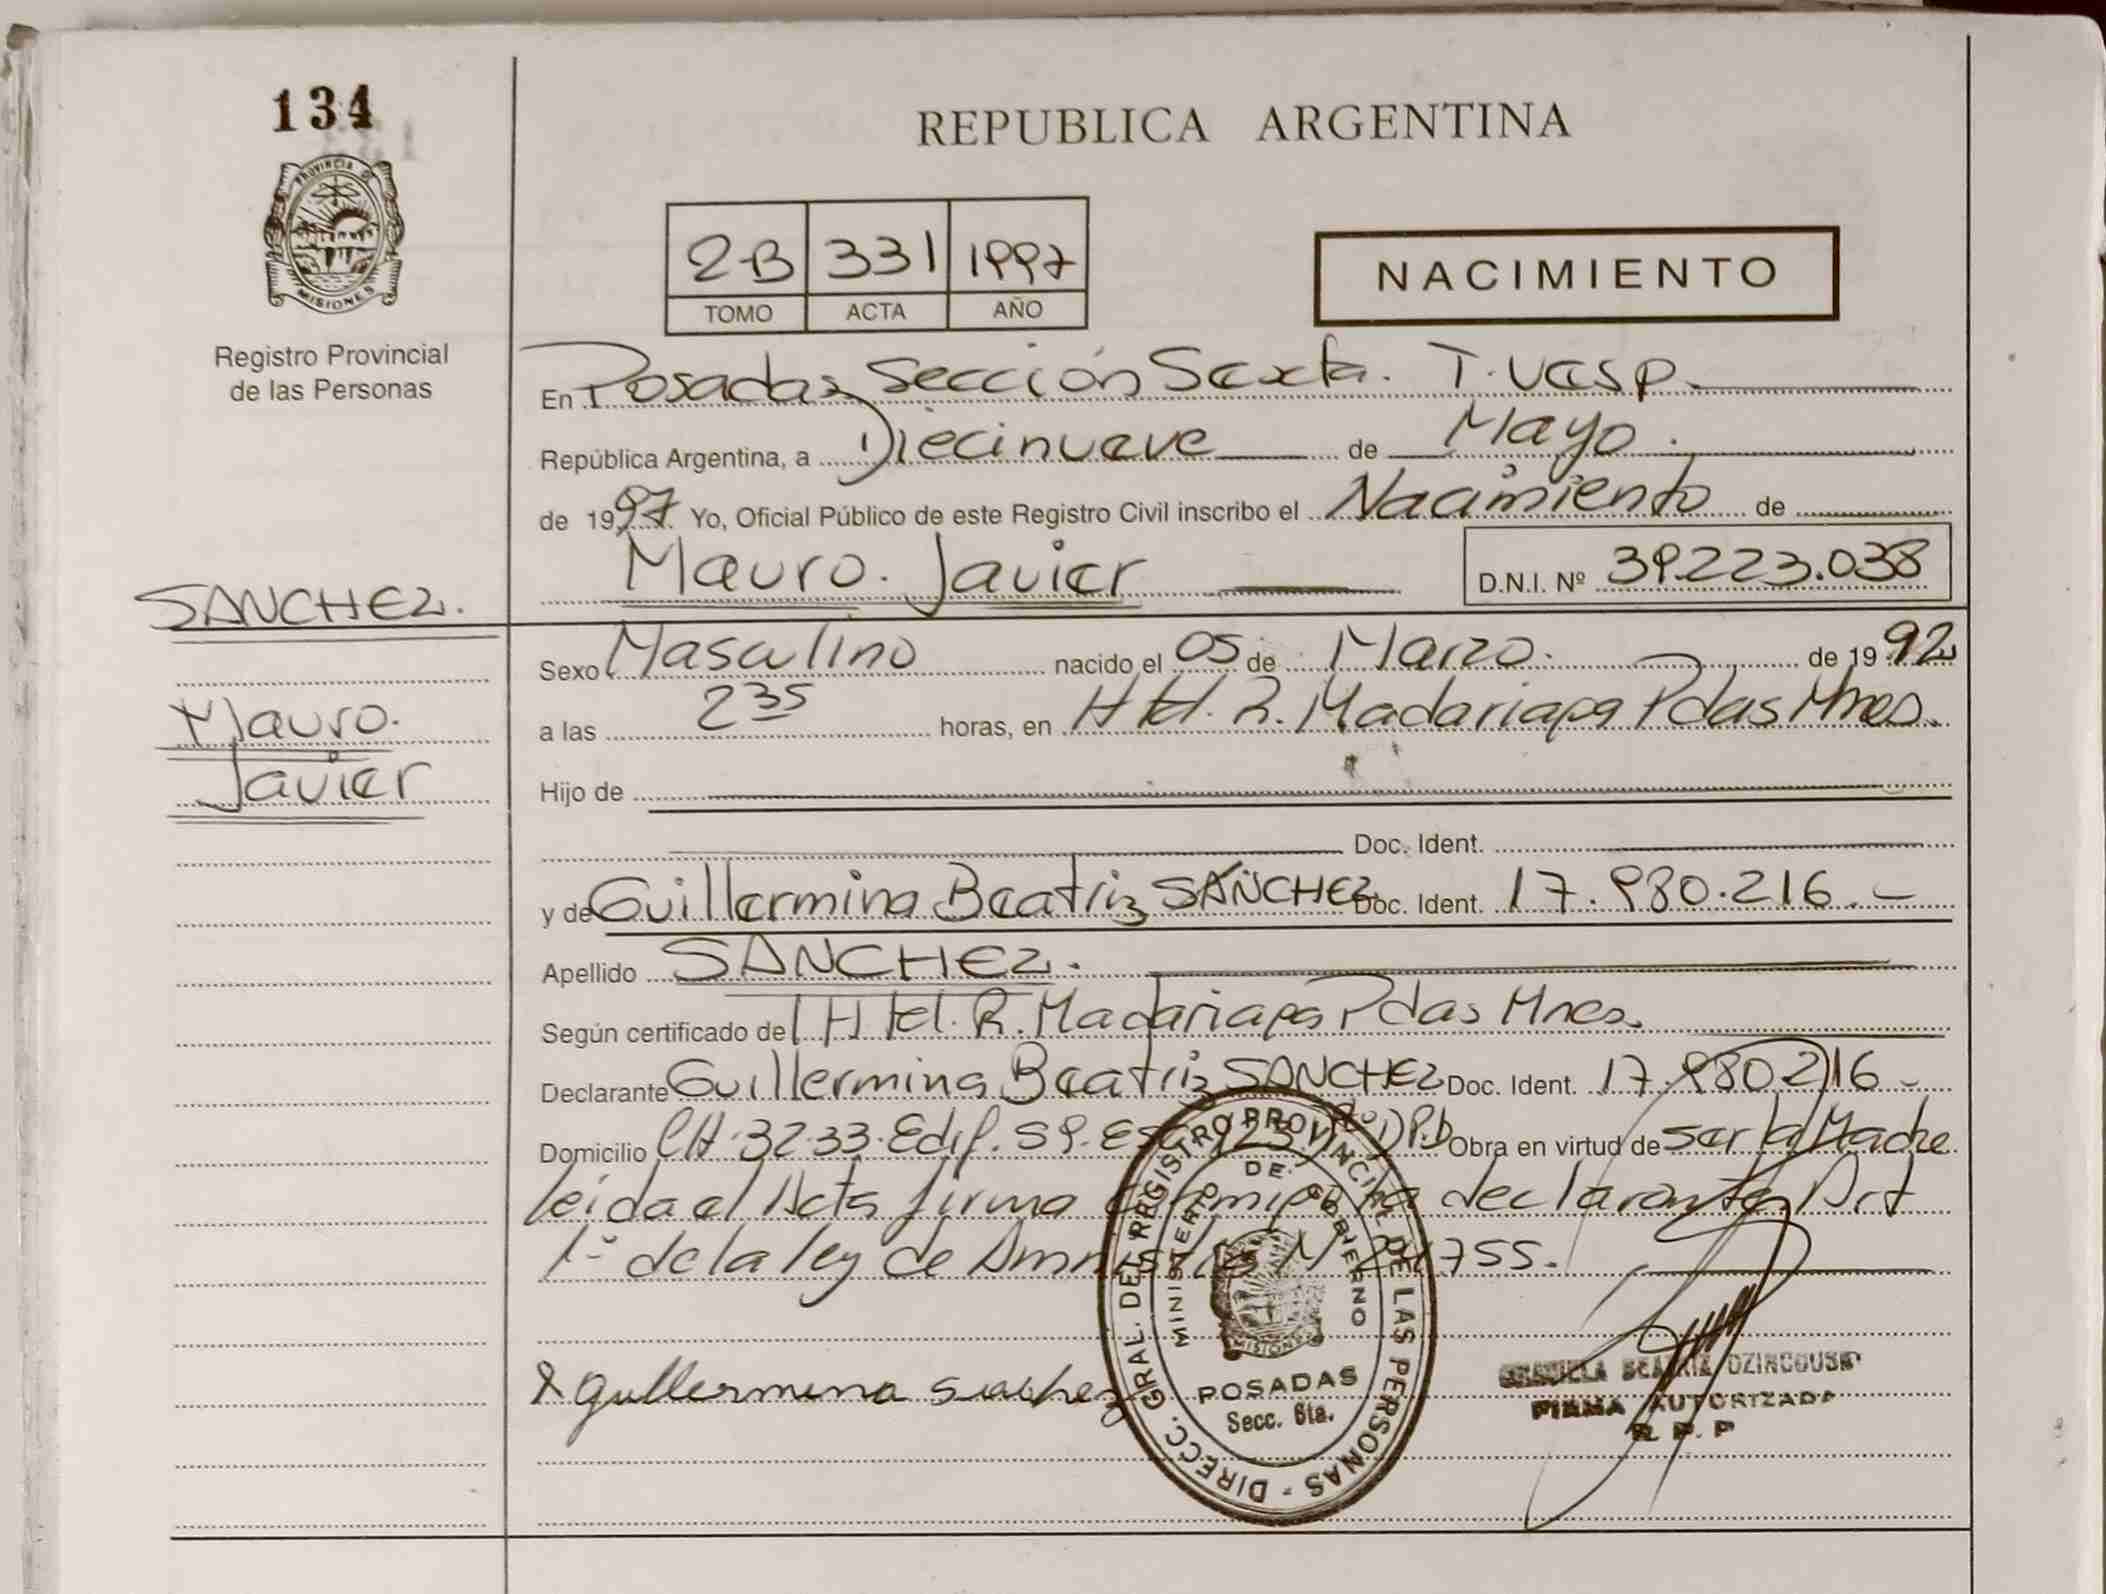 134
REPUBLICA ARGENTINA
PROVINCIA DE
MISIONES
Registro Provincial
de las Personas
2-B 331 1997
TOMO ACTA AÑO
NACIMIENTO
En Posadas Sección Sexta. T. Vesp.
República Argentina, a Diecinueve de Mayo.
de 1997 Yo, Oficial Público de este Registro Civil inscribo el Nacimiento de
Mauro. Javier D.N.I. Nº 39.223.038
SANCHEZ.
Mauro.
Javier
Sexo Masculino nacido el 05 de Marzo. de 1992
a las 2 35 horas, en Htel. R. Madariaga Pdas Mnes.
Hijo de
Doc. Ident.
y de Guillermina Beatriz SANCHEZ Doc. Ident. 17.980.216.-
Apellido SANCHEZ.
Según certificado de Htel. R. Madariaga Pdas Mnes.
Declarante Guillermina Beatriz SANCHEZ Doc. Ident. 17.980216-
Domicilio CH. 32-33. Edif. 59. Esc. Obra en virtud de ser la Madre
leída el Acta firma la declarante Art
1º de la ley de Nº 24755.
Guillermina Sanchez
DIRECC. GRAL. DEL REGISTRO PROVINCIAL DE LAS PERSONAS -
MINISTERIO DE GOBIERNO
MISIONES
POSADAS
Secc. 6ta.
GRACIELA BEATRIZ
FIRMA AUTORIZADA
R. P. P